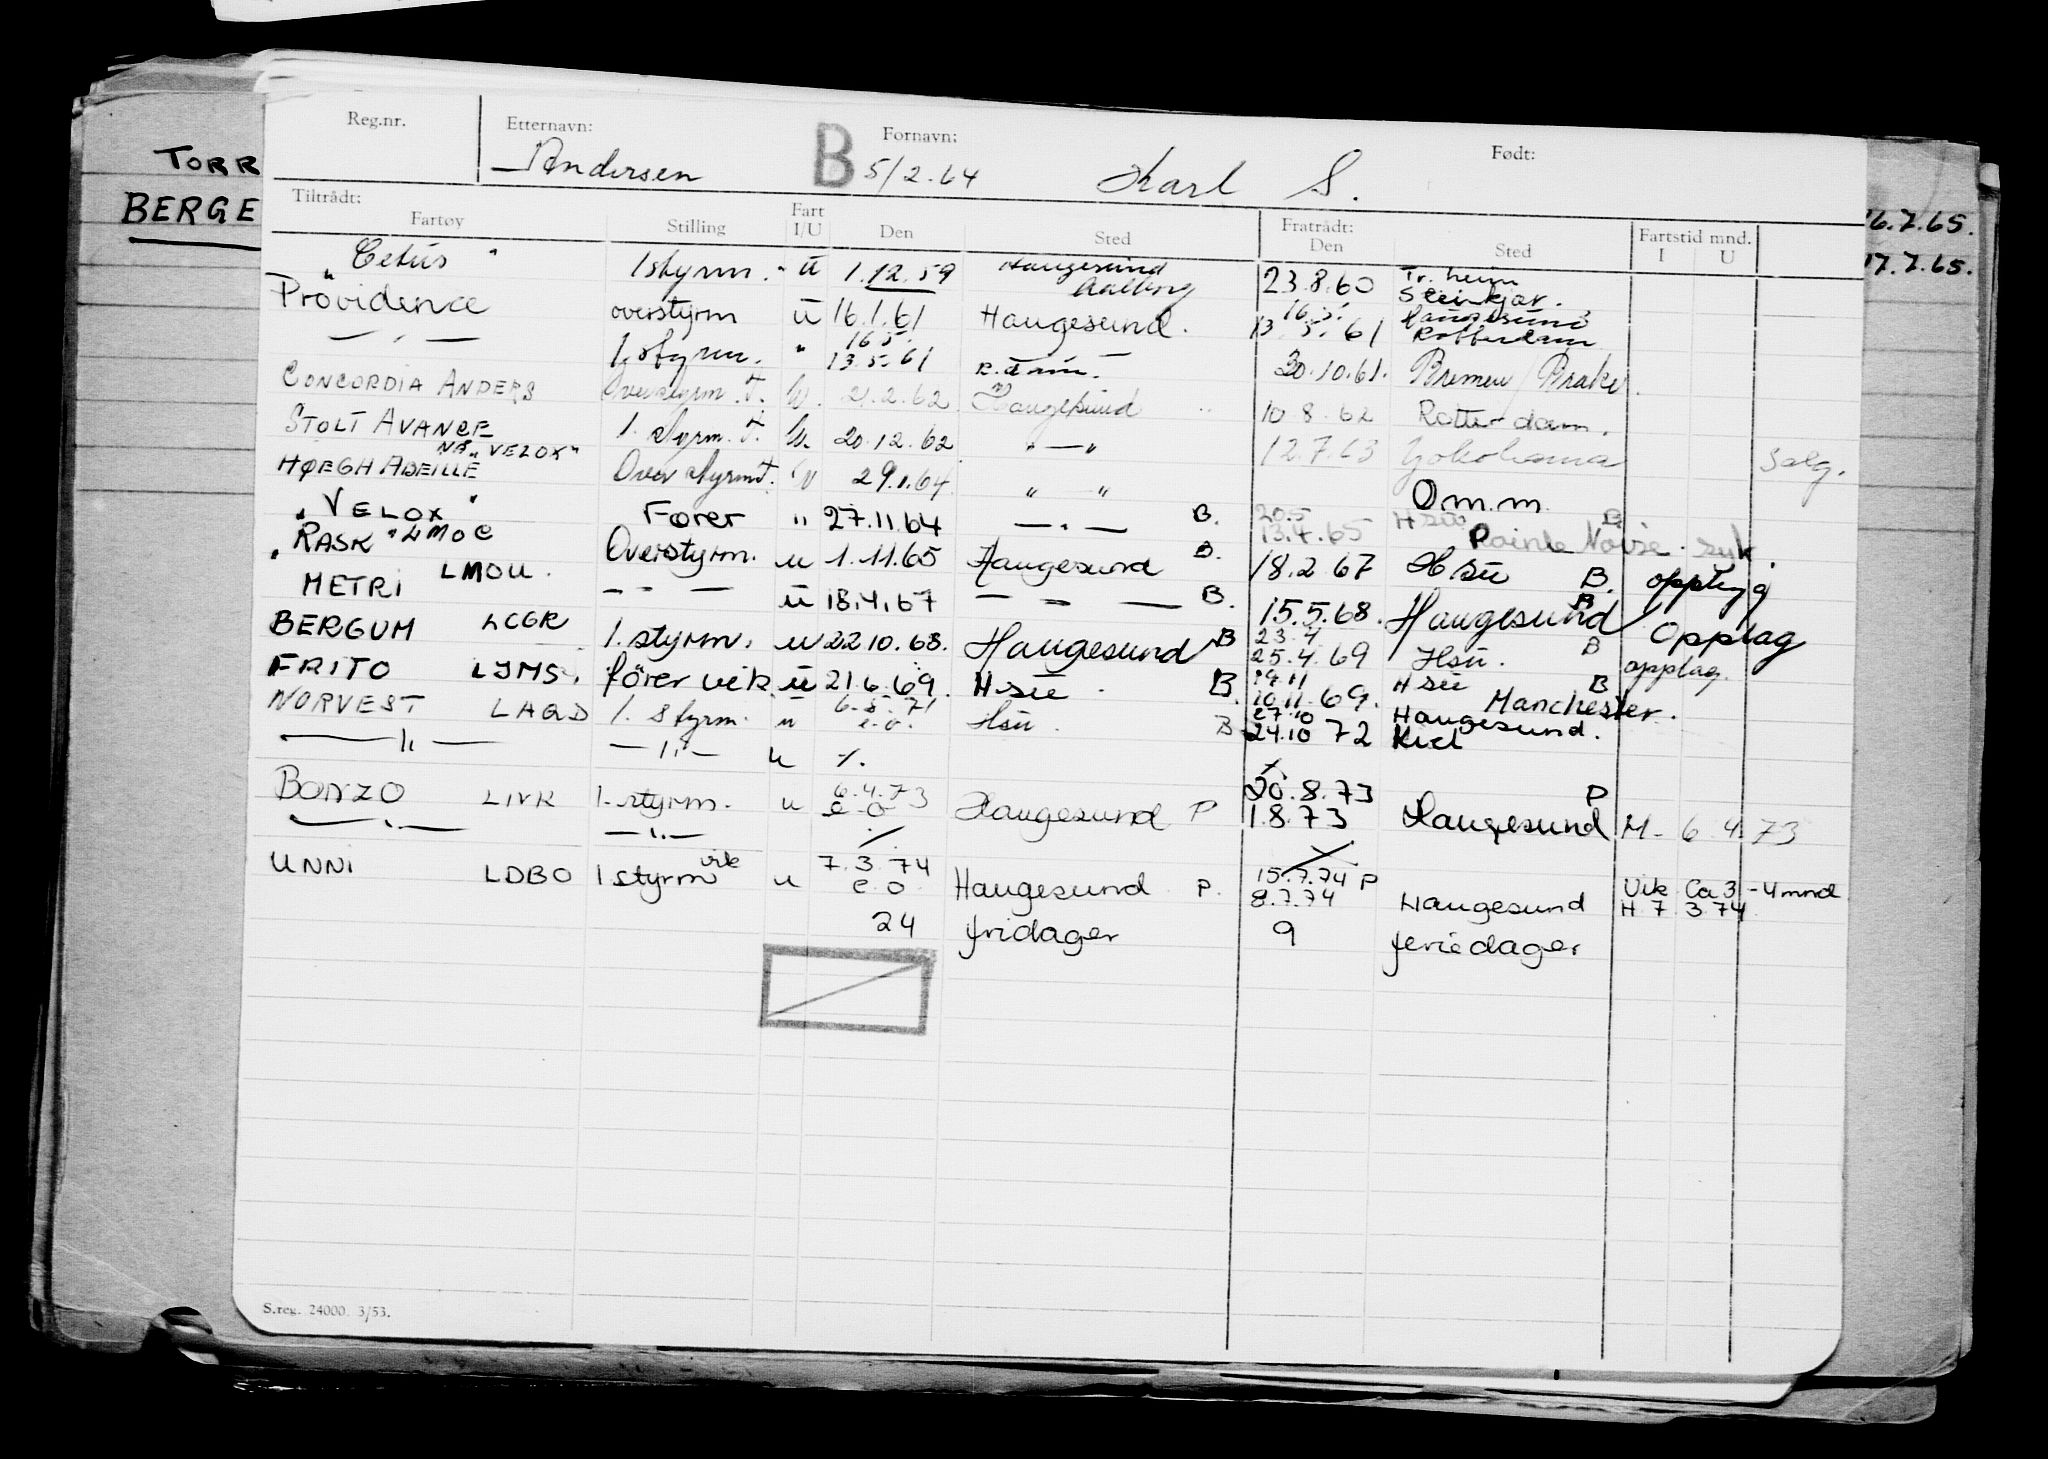 Reg.nr. Etternavn: Fornavn: Født:
Andersen B 5/2.64 Karl S.
TORR
BERGE
16.7.65.
17.7.65.
Tiltrådt: Fartøy Stilling Fart I/U Den Sted Fratrådt: Den Sted Fartstid mnd. I U
"Cetus" 1 styrm. ū 1.12.59 Haugesund Aalborg 23.8.60 Tr.heim Steinkjær.
Providence overstyrm ū 16.1.61 Haugesund. 16.5. 13.5.61 Haugesund Rotterdam
— " — 1. styrm. " 16.5. 13.5.61 30.10.61. Bremen/Brake.
CONCORDIA ANDERS Overstyrm. T. U. 21.2.62 Haugesund 10.8.62 Rotterdam.
STOLT AVANCE 1. styrm. T. U. 20.12.62 " — " 12.7.63 Yokohama Salg.
NB "VELOX"
HØEGH ABEILLE Overstyrm T. U 29.1.64 " — " Om.m.
"VELOX" Fører " 27.11.64 — " — B. 20.5 13.4.65 Hsu B Pointe Noire. syk
"RASK" LMOC Overstyrm. u 1.11.65 Haugesund B. 18.2.67 Hsu B. opplag
METRI LMOU. — " — ū 18.4.67 — " — B. 15.5.68. Haugesund B Opplag
BERGUM LCGR 1. styrm. u 22.10.68. Haugesund B 23.4 25.4.69 Hsu. B opplag.
FRITO LJMS. fører vik. ū 21.6.69. Hsu. B. 19.11 10.11.69. Hsu B Manchester.
NORVEST LAQD 1. styrm. u 6.5.71 e.o. Hsu. B 27.10 24.10 72 Haugesund. Kiel
— " — — " — u ⁒
BONZO LIVR 1. styrm. u 6.4.73 e.o Haugesund P 20.8.73 1.8.73 P Haugesund M- 6 4 73
— " — — " — ⁒
UNNI LDBO 1 styrm vik u 7.3.74 e.o. Haugesund P. 15.7.74 P 8.7.74 Haugesund Vik Ca 3-4 mnd. H 7 3 74
24 fridager 9 feriedager
S.reg. 24000. 3/53.